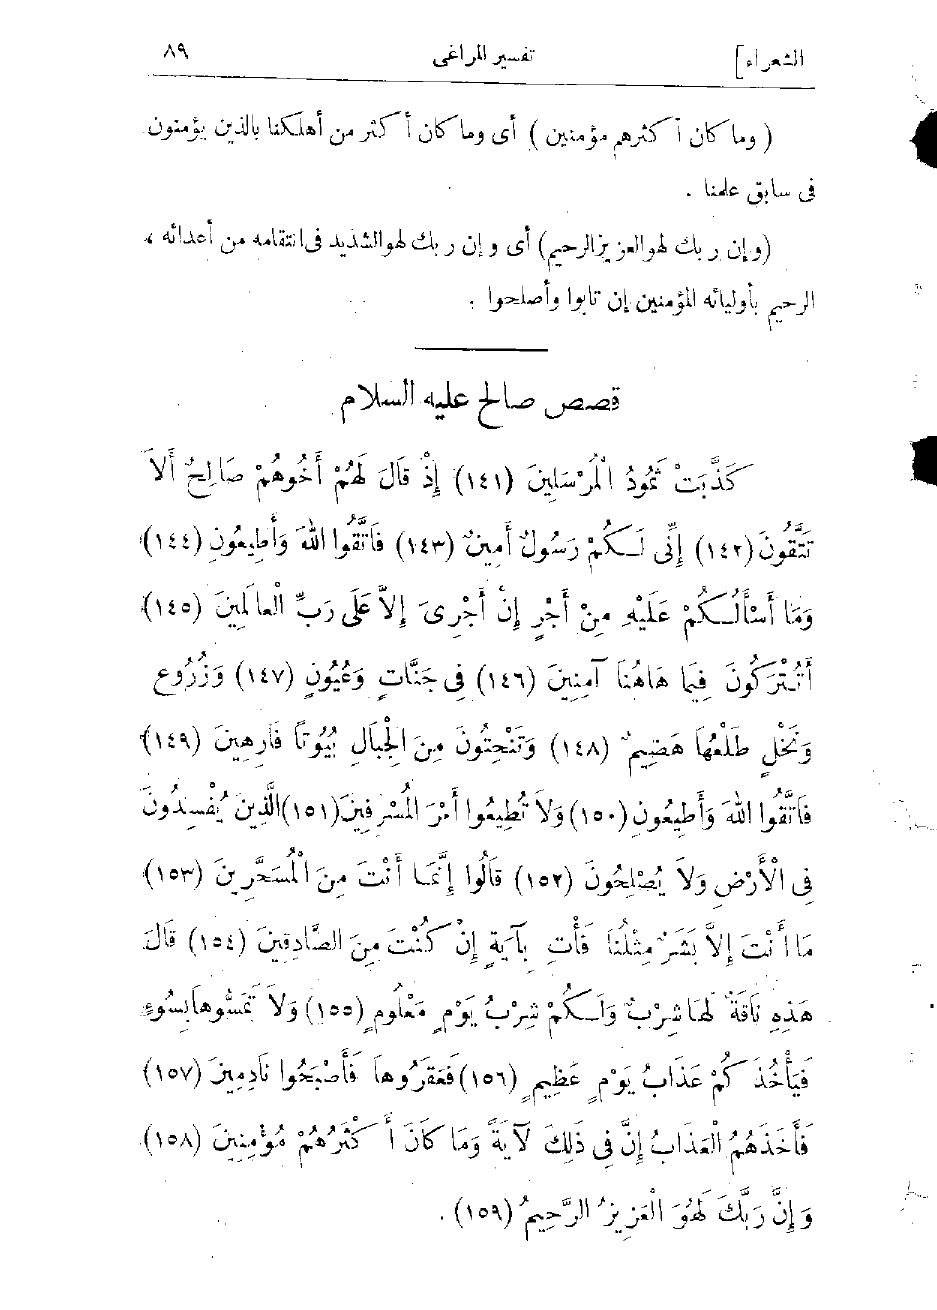 الشعراء] تفسير المراغى ٨٩
( وما كان أكثرهم مؤمنين ) أى وما كان أكثر من أهلكنا بالذين يؤمنون
فى سابق علمنا .
(وإن ربك لهو العزيز الرحيم) أى وإن ربك لهو الشديد فى انتقامه من أعدائه ،
الرحيم بأوليائه المؤمنين إن تابوا وأصلحوا .
قصص صالح عليه السلام
كَذَّبَتْ ثَمُودُ الْمُرْسَلِينَ (١٤١) إِذْ قَالَ لَهُمْ أَخُوهُمْ صَالِحٌ أَلاَ
تَتَّقُونَ (١٤٢) إِنِّى لَكُمْ رَسُولٌ أَمِينٌ (١٤٣) فَاتَّقُوا اللهَ وَأَطِيعُونِ (١٤٤)
وَمَا أَسْأَلُكُمْ عَلَيْهِ مِنْ أَجْرٍ إِنْ أَجْرِىَ إِلاَّ عَلَى رَبِّ الْعالَمِينَ (١٤٥)
أَتُتْرَكُونَ فِيما هَاهُنَا آمِنِينَ (١٤٦) فِى جَنَّاتٍ وَعُيُونٍ (١٤٧) وَزُرُوعٍ
وَنَخْلٍ طَلْعُهَا هَضِيمٌ (١٤٨) وَتَنْحِتُونَ مِنَ الْجِبَالِ بُيُوتًا فَارِهِينَ (١٤٩)
فَاتَّقُوا اللهَ وَأَطِيعُونِ (١٥٠) وَلاَ تُطِيعُوا أَمْرَ الْمُسْرِفِينَ (١٥١) الَّذِينَ يُفْسِدُونَ
فِى الْأَرْضِ وَلاَ يُصْلِحُونَ (١٥٢) قَالُوا إِنَّمَا أَنْتَ مِنَ الْمُسَحَّرِينَ (١٥٣)
مَا أَنْتَ إِلاَّ بَشَرٌ مِثْلُنَا فَأْتِ بِآيَةٍ إِنْ كُنْتَ مِنَ الصَّادِقِينَ (١٥٤) قَالَ
هَذِهِ نَاقَةٌ لَهَا شِرْبٌ وَلَكُمْ شِرْبُ يَوْمٍ مَعْلُومٍ (١٥٥) وَلاَ تَمَسُّوها بِسُوءٍ
فَيَأْخُذَكُمْ عَذَابُ يَوْمٍ عَظِيمٍ (١٥٦) فَعَقَرُوها فَأَصْبَحُوا نَادِمِينَ (١٥٧)
فَأَخَذَهُمُ الْعَذَابُ إِنَّ فِى ذَلِكَ لَآيَةً وَمَا كَانَ أَكْثَرُهُمْ مُؤْمِنِينَ (١٥٨)
وَإِنَّ رَبَّكَ لَهُوَ الْعَزِيزُ الرَّحِيمُ (١٥٩) .